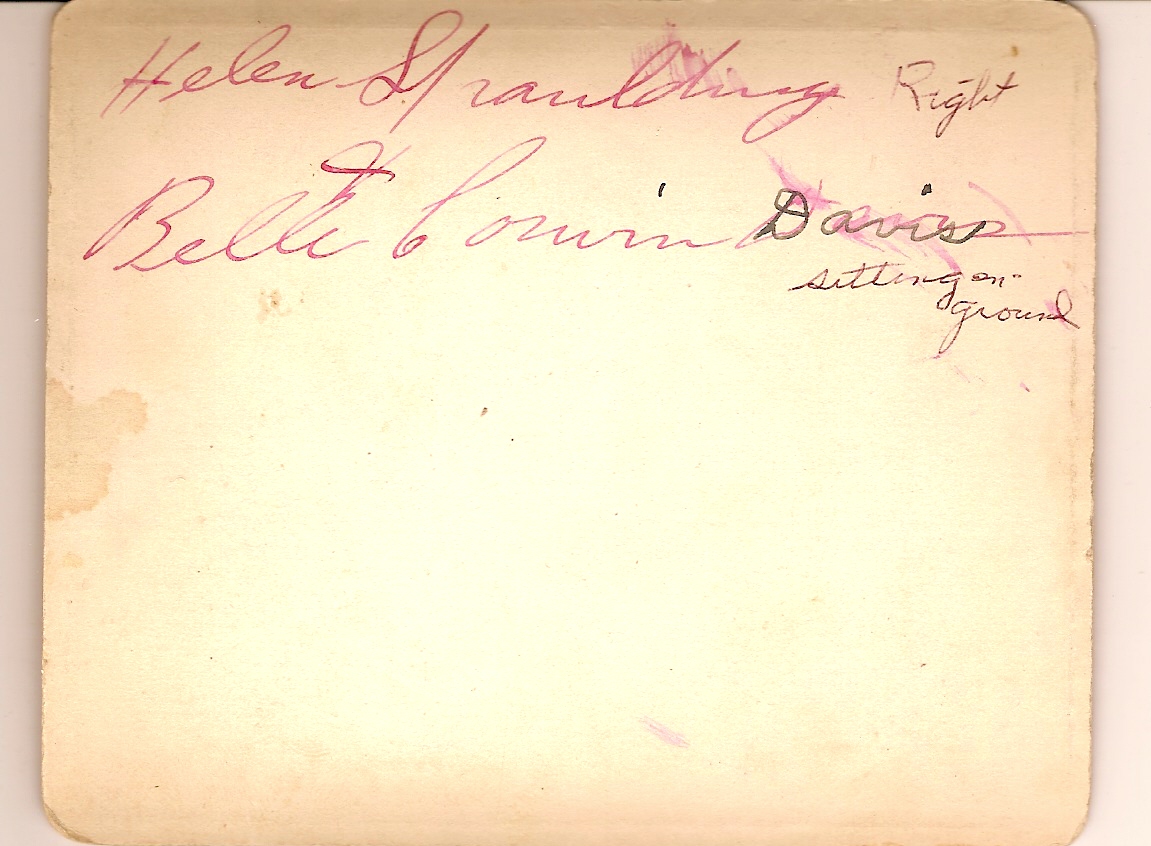 Helen Spraulding Right
Belle Corwin Davis
sitting on
ground